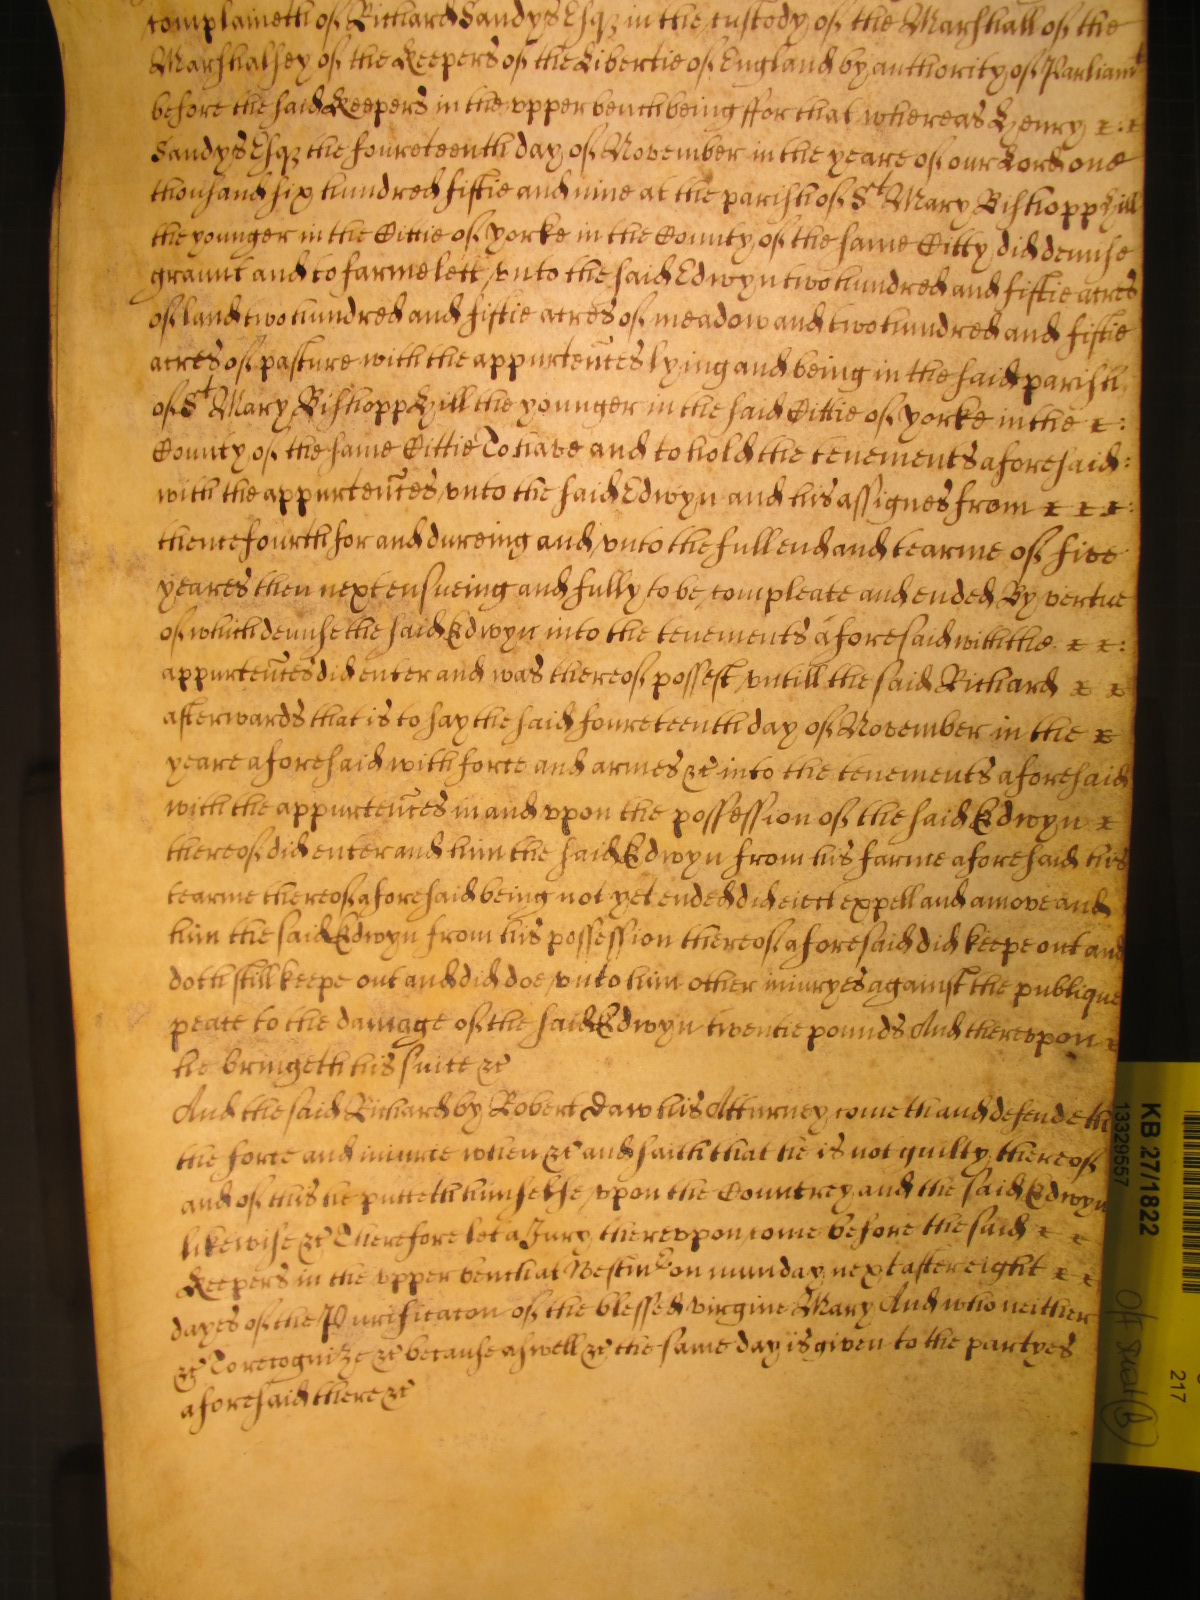 complaineth of Richard Sandys Esqz in the custody of the Marshall of the
Marshalsey of the Keepers of the Libertie of England by authority of Parliamt
before the said Keepers in the vpper bench being ffor that whereas Henry
Sandys Esqz the foureteenth day of November in the yeare of our Lord one
thousand six hundred fiftie and nine at the parish of St Mary Bishopp Hill
the younger in the Cittie of yorke in the County of the same Citty did demise
graunt and to farme lett vnto the said Edwyn two hundred and fiftie acres
of land two hundred and fiftie acres of meadow and two hundred and fiftie
acres of pasture with the appurtenc̄es lying and being in the said parish
of St Mary Bishopp Hill the younger in the said Cittie of yorke in the
County of the same Cittie To have and to hold the tenements aforesaid:
with the appurtenc̄es vnto the said Edwyn and his assignes from
thencefourth for and dureing and vnto the full end and tearme of five
yeares then next ensueing and fully to be compleate and ended By vertue
of which demise the said Edwyn into the tenements aforesaid with the
appurtenc̄es did enter and was thereof possest vntill the said Richard
afterwards that is to say the said foureteenth day of November in the
yeare aforesaid with force and armes &c into the tenements aforesaid
with the appurtenc̄es in and vpon the possession of the said Edwyn
thereof did enter and him the said Edwyn from his farme aforesaid his
tearme thereof aforesaid being not yet ended did eiect expell and amove and
him the said Edwyn from his possession thereof aforesaid did keepe out and
doth still keepe out and did doe vnto him other iniuryes against the publique
peace to the damage of the said Edwyn twentie pounds And therevpon
he bringeth his suite &c
And the said Richard by Robert Daw his Atturney cometh and defendeth
the force and iniurie when &c and saith that he is not guilty thereof
and of this he putteth himselfe vpon the Countrey and the said Edwyn
likewise &c Therefore let a Jury therevpon come before the said
Keepers in the vpper bench at Westmr on munday next after eight
dayes of the Purificacon of the blessed virgine Mary And who neither
&c To recognize &c because aswell &c the same day is given to the partyes
aforesaid there &c
KB 27/1822
13329557
217